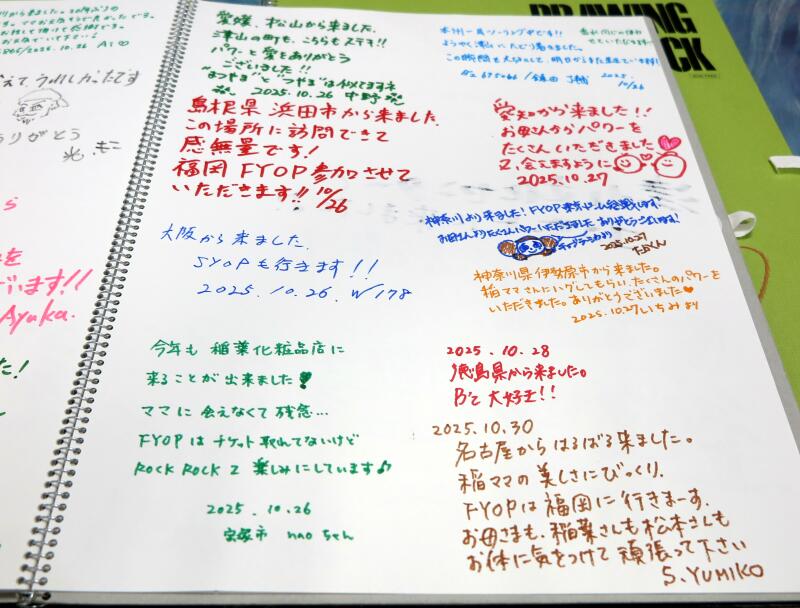 からうれしかったです
ありがとう
います!!
Ayuka.
た!
愛媛、松山から来ました。
津山の町も、こちらもステキ!!
パワーと愛をありがとう
ございました!!
"まつやま"と"つやま"は似てますネ
2025.10.26 中野
島根県 浜田市から来ました
この場所に訪問できて
感無量です!
福岡 FYOP 参加させて
いただきます!! 10/26
大阪から来ました。
SYOPも行きます!!
2025.10.26. W178
今年も 稲葉化粧品店に
来ることが出来ました!
ママに会えなくて残念…
FYOPは チケット取れてないけど
ROCK ROCK Z 楽しみにしています♪
2025.10.26
宝塚市 naoちゃん
本州一周ツーリング中です!!
ようやく津山にたどり着きました。
2025.
10/26
愛知から来ました!!
お母さんからパワーを
たくさんいただきました
又、会えますように
2025.10.27
神奈川より来ました! FYOP東京ドーム参戦します!
お母さんよりたくさんパワーいただきました ありがとうございます!
2025.10.27
神奈川県伊勢原市から来ました。
稲ママさんにハグしてもらい、たくさんのパワーを
いただきました。ありがとうございました♥
2025.10.27 いちみより
2025.10.28
徳島県から来ました。
B'z 大好き!!
2025.10.30
名古屋からはるばる来ました。
稲ママの美しさにびっくり。
FYOPは福岡に行きまーす。
お母さまも、稲葉さんも松本さんも
お体に気をつけて頑張って下さい
S.YUMIKO
DRAWING